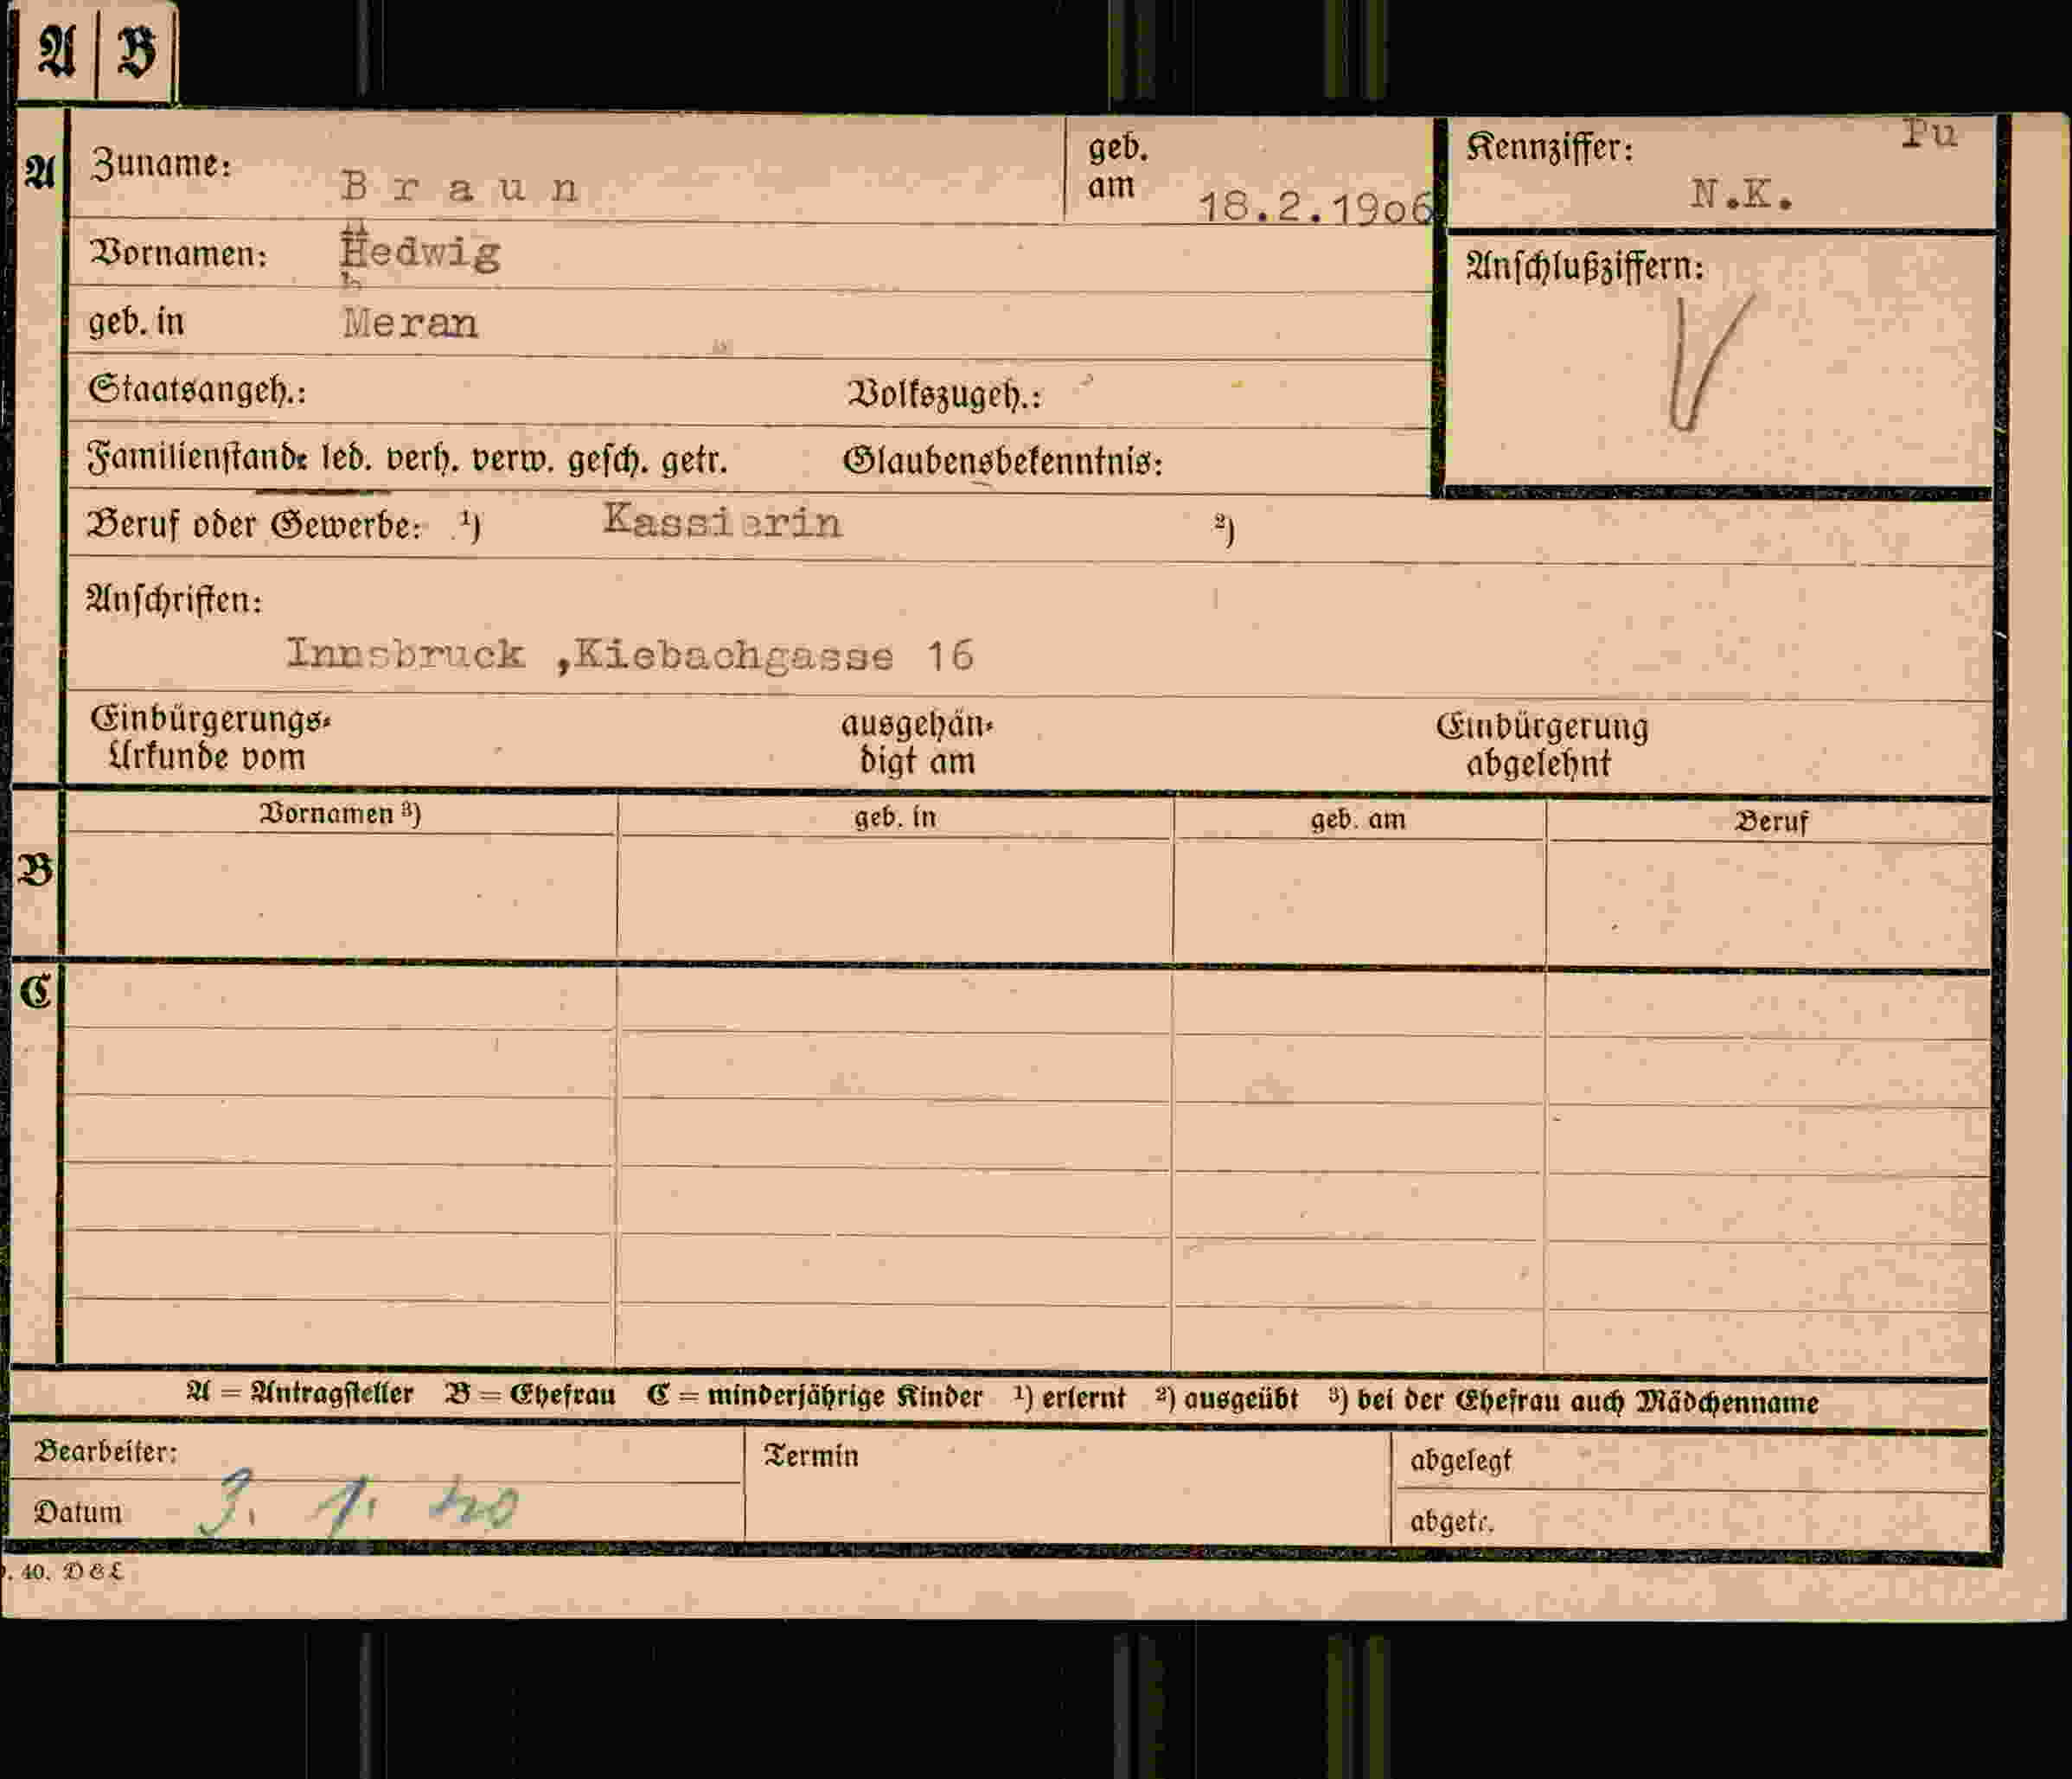 A | B
A Zuname: Braun geb. am 18.2.1906 Kennziffer: Pu
N.K.
Vornamen: Hedwig Anschlußziffern:
geb. in Meran
Staatsangeh.: Volkszugeh.:
Familienstand: led. verh. verw. gesch. getr. Glaubensbekenntnis:
Beruf oder Gewerbe: ¹) Kassierin ²)
Anschriften:
Innsbruck ,Kiebachgasse 16
Einbürgerungs- ausgehän- Einbürgerung
Urkunde vom digt am abgelehnt
Vornamen ³) geb. in geb. am Beruf
B
C
A = Antragsteller B = Ehefrau C = minderjährige Kinder ¹) erlernt ²) ausgeübt ³) bei der Ehefrau auch Mädchenname
Bearbeiter: Termin abgelegt
Datum 3. 1. 40 abgetr.
. 40. D & L